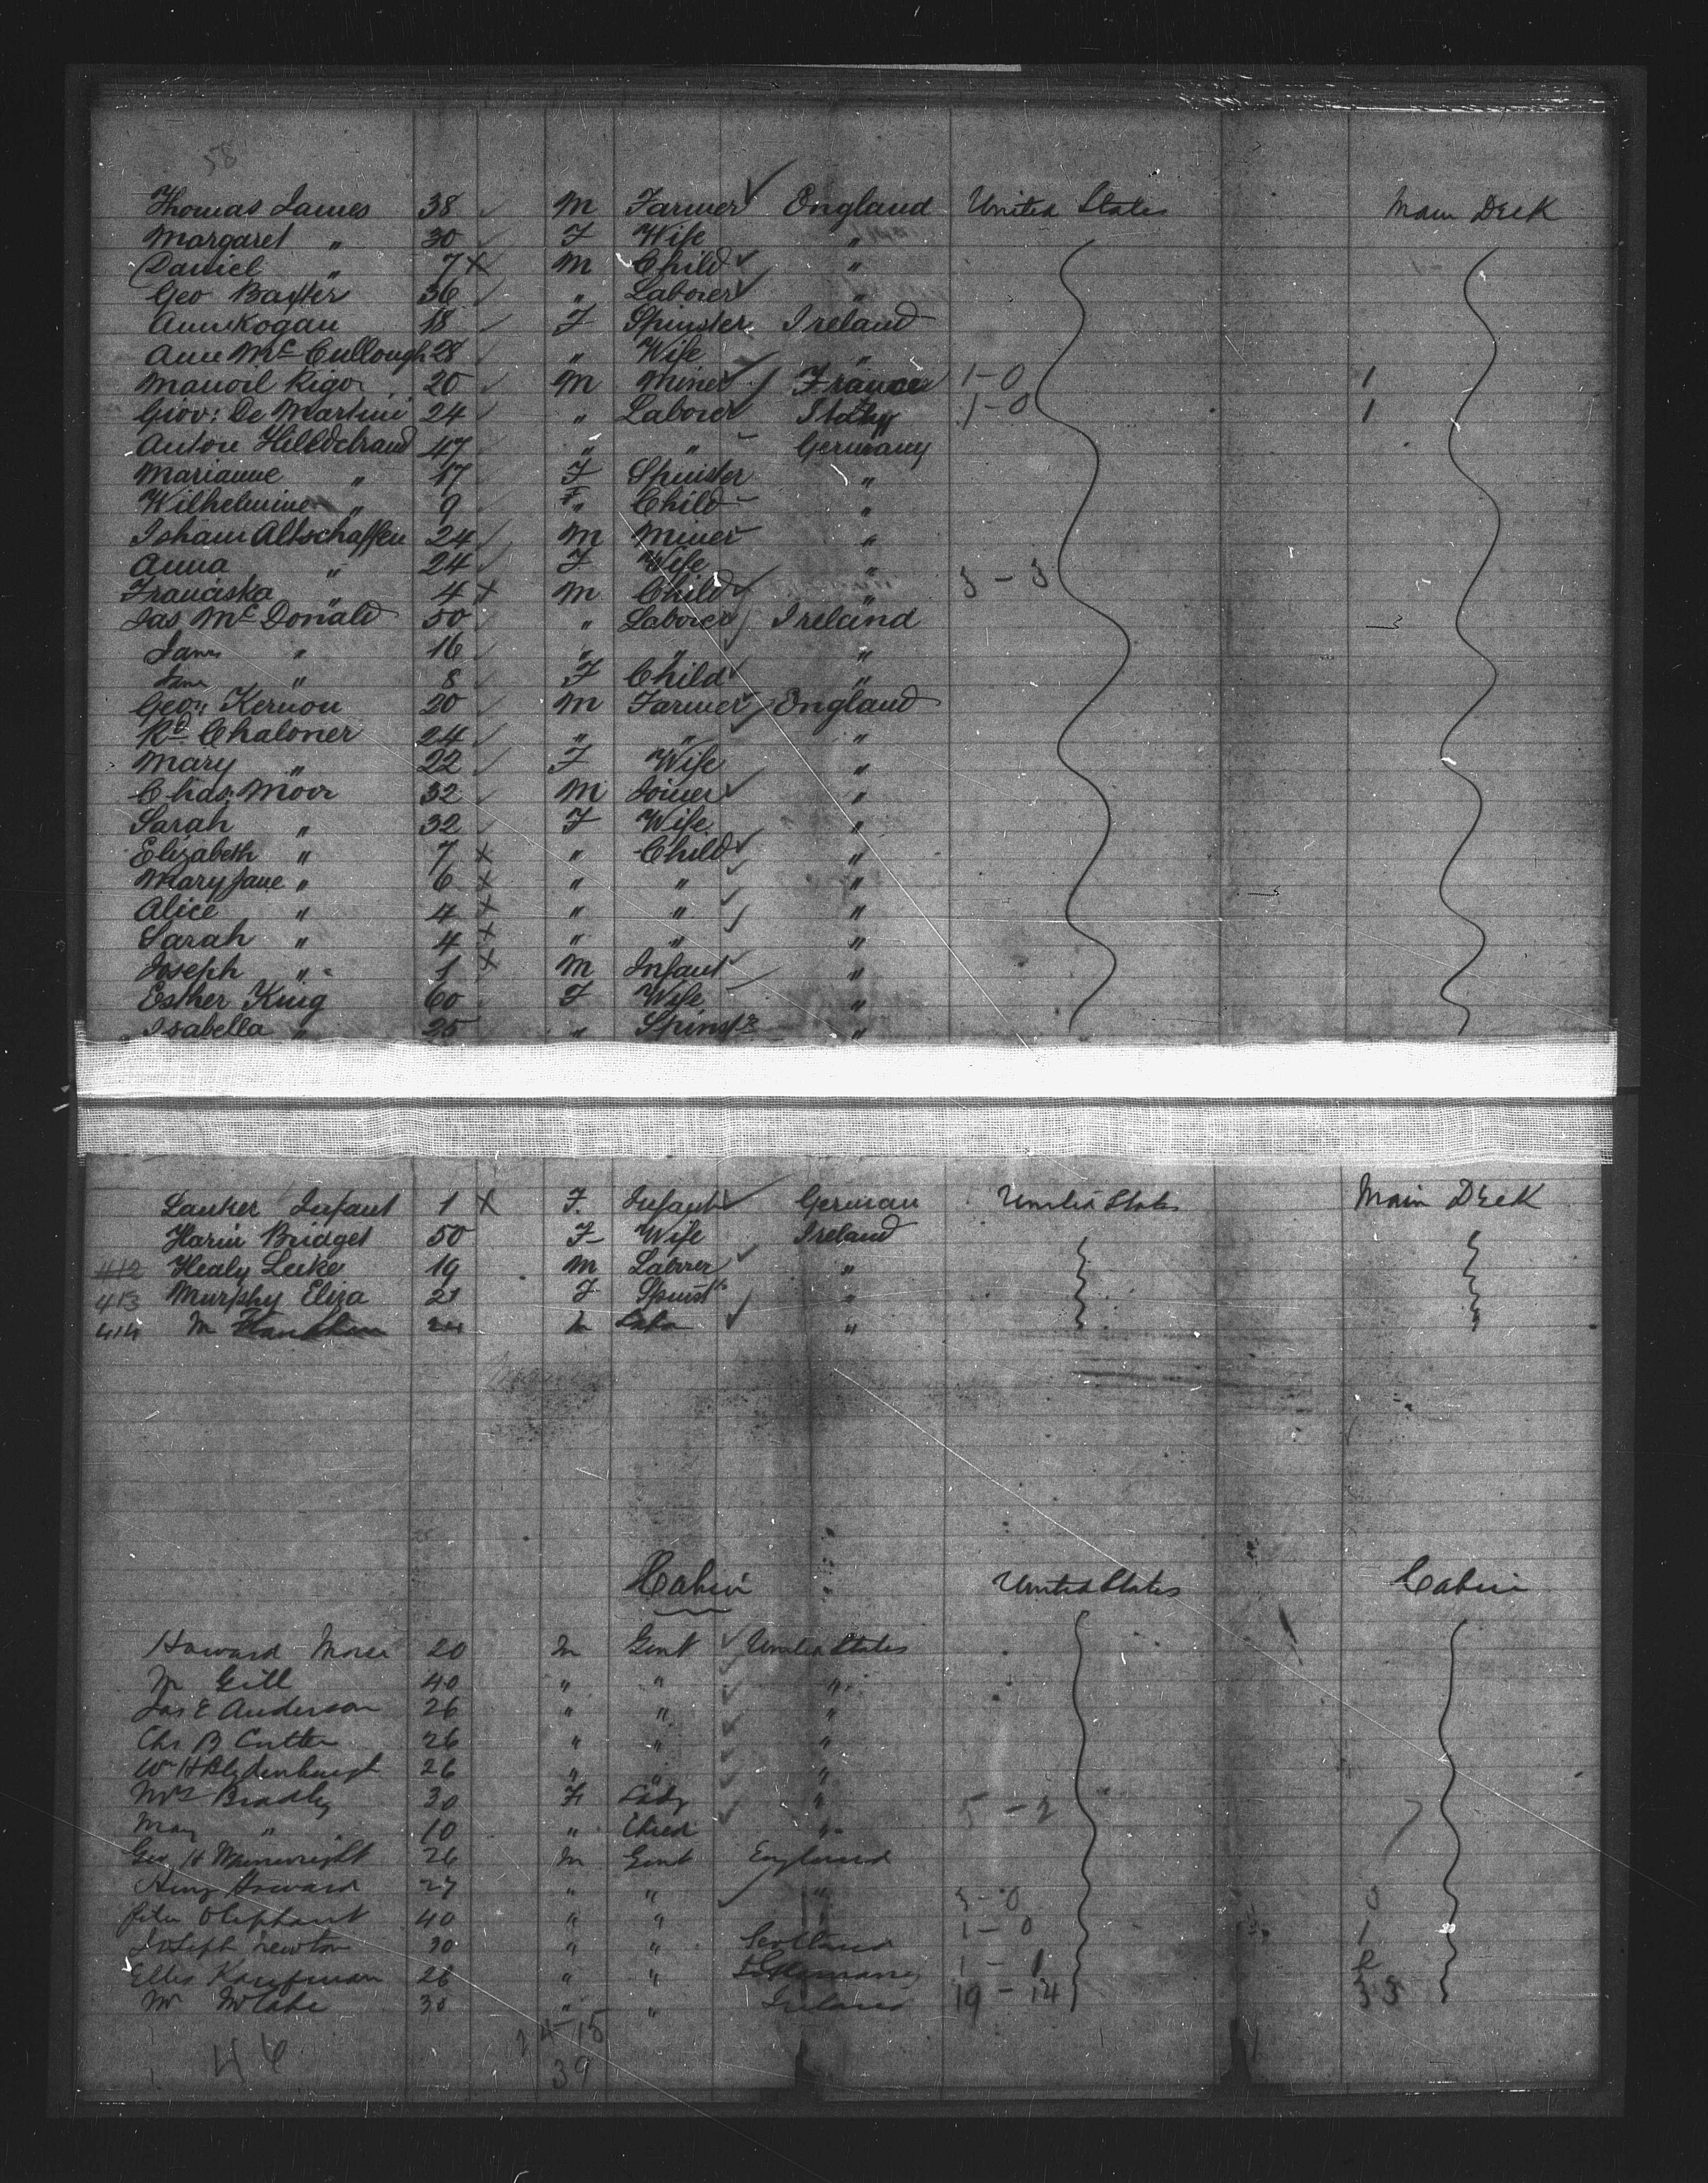 58
Thomas James 38 M Farmer England United States Main Deck
Margaret " 30 F Wife "
Daniel " 7 X M Child "
Geo Baxter 36 " Laborer "
Ann Kogan 18 F Spinster Ireland
Ann Mc Cullough 28 " Wife "
Manoil Rigor 20 M Miner France 1-0 1
Giov: De Martini 24 " Laborer Italy 1-0 1
Anton Hilldebrand 47 " " Germany
Marianne " 17 F Spinster "
Wilhelmine " 9 F " Child "
Johann Altschaffen 24 M Miner "
Anna " 24 F Wife "
Franciska " 4 X M Child " 3-3
Jas Mc Donald 50 " Laborer Ireland
James " 16 " " "
Jane " 8 F Child "
Geo: Kernon 20 M Farmer England
Rd Chaloner 24 " " "
Mary " 22 F Wife "
Chas: Moor 32 M Joiner "
Sarah " 32 F Wife "
Elizabeth " 7 X " Child "
Mary Jane " 6 X " " "
Alice " 4 X " " "
Sarah " 4 X " " "
Joseph " 1 X M Infant "
Esther King 60 F Wife "
Isabella " 25 " Spinstr "
Lanker Infant 1 X F. Infant German United States Main Deck
Bridget 50 F Wife Ireland
412 Healy Luke 19 M Laborer "
413 Murphy Eliza 21 F Spinstr "
414 M "
Cabin United States Cabin
Howard Morse 20 M Gent United States
M Gill 40 " " "
Jas E Anderson 26 " " "
Chs B Cutter 26 " " "
Wm H Blydenburgh 26 " " "
Mrs Bradley 30 F Lady " 5-2 7
May " 10 " Child "
Geo H Wainwright 26 M Gent England
Howard 27 " " " 3-0
Oliphant 40 " " 1-0 1
Joseph Newton 30 " " Scotland
Ellis Kaufman 26 " " Germany 1-1 2
M McCabe 30 " " Ireland 19-14 33
46 24-15
39